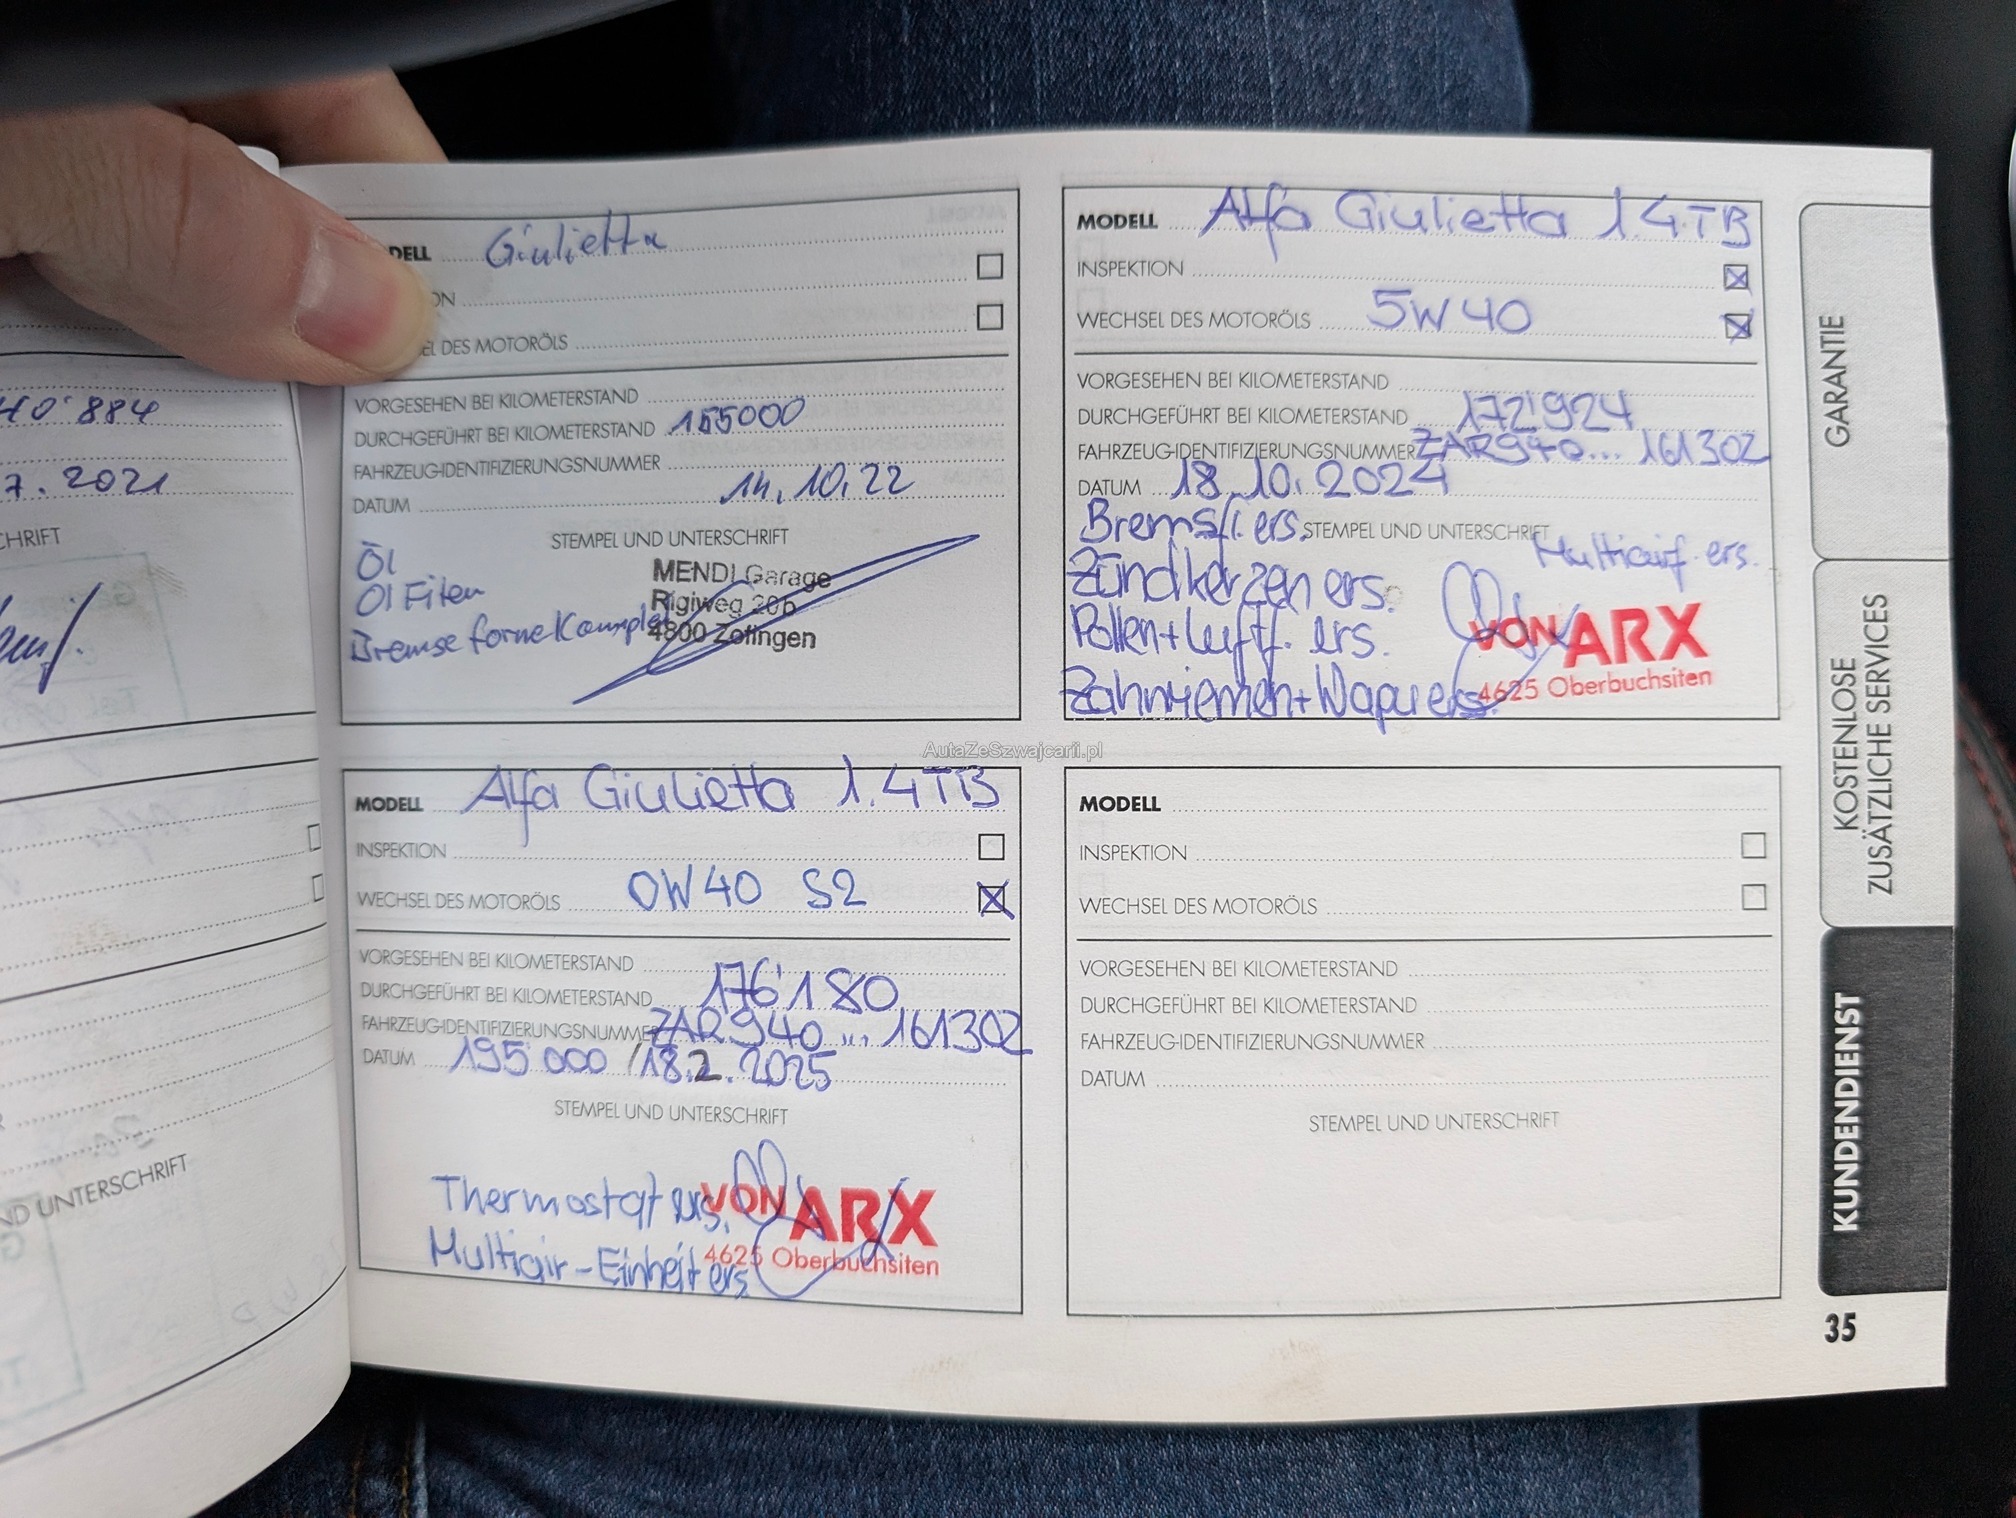 40'884
7.2021
CHRIFT
ND UNTERSCHRIFT
DELL Giulietta
ON
EL DES MOTORÖLS
VORGESEHEN BEI KILOMETERSTAND
DURCHGEFÜHRT BEI KILOMETERSTAND 155000
FAHRZEUG-IDENTIFIZIERUNGSNUMMER
DATUM 14.10.22
STEMPEL UND UNTERSCHRIFT
Öl
Öl Filten
Bremse forne Komplet
MENDI Garage
Rigiweg 20b
4800 Zofingen
MODELL Alfa Giulietta 1.4 TB
INSPEKTION
WECHSEL DES MOTORÖLS 5W40
VORGESEHEN BEI KILOMETERSTAND
DURCHGEFÜHRT BEI KILOMETERSTAND 172'924
FAHRZEUG-IDENTIFIZIERUNGSNUMMER ZAR940... 161302
DATUM 18.10.2024
Bremsfl. ers.
STEMPEL UND UNTERSCHRIFT
Zündkerzen ers.
Pollen+Luftf. ers.
Zahnriemen+Wapu ers.
VON ARX
4625 Oberbuchsiten
AutaZeSzwajcarii.pl
MODELL Alfa Giulietta 1.4 TB
INSPEKTION
WECHSEL DES MOTORÖLS 0W40 S2
VORGESEHEN BEI KILOMETERSTAND
DURCHGEFÜHRT BEI KILOMETERSTAND 176'180
FAHRZEUG-IDENTIFIZIERUNGSNUMMER ZAR940 ... 161302
DATUM 195'000 / 18.2.2025
STEMPEL UND UNTERSCHRIFT
Thermostat ers.
Multiair-Einheit ers
VON ARX
4625 Oberbuchsiten
MODELL
INSPEKTION
WECHSEL DES MOTORÖLS
VORGESEHEN BEI KILOMETERSTAND
DURCHGEFÜHRT BEI KILOMETERSTAND
FAHRZEUG-IDENTIFIZIERUNGSNUMMER
DATUM
STEMPEL UND UNTERSCHRIFT
GARANTIE
KOSTENLOSE
ZUSÄTZLICHE SERVICES
KUNDENDIENST
35